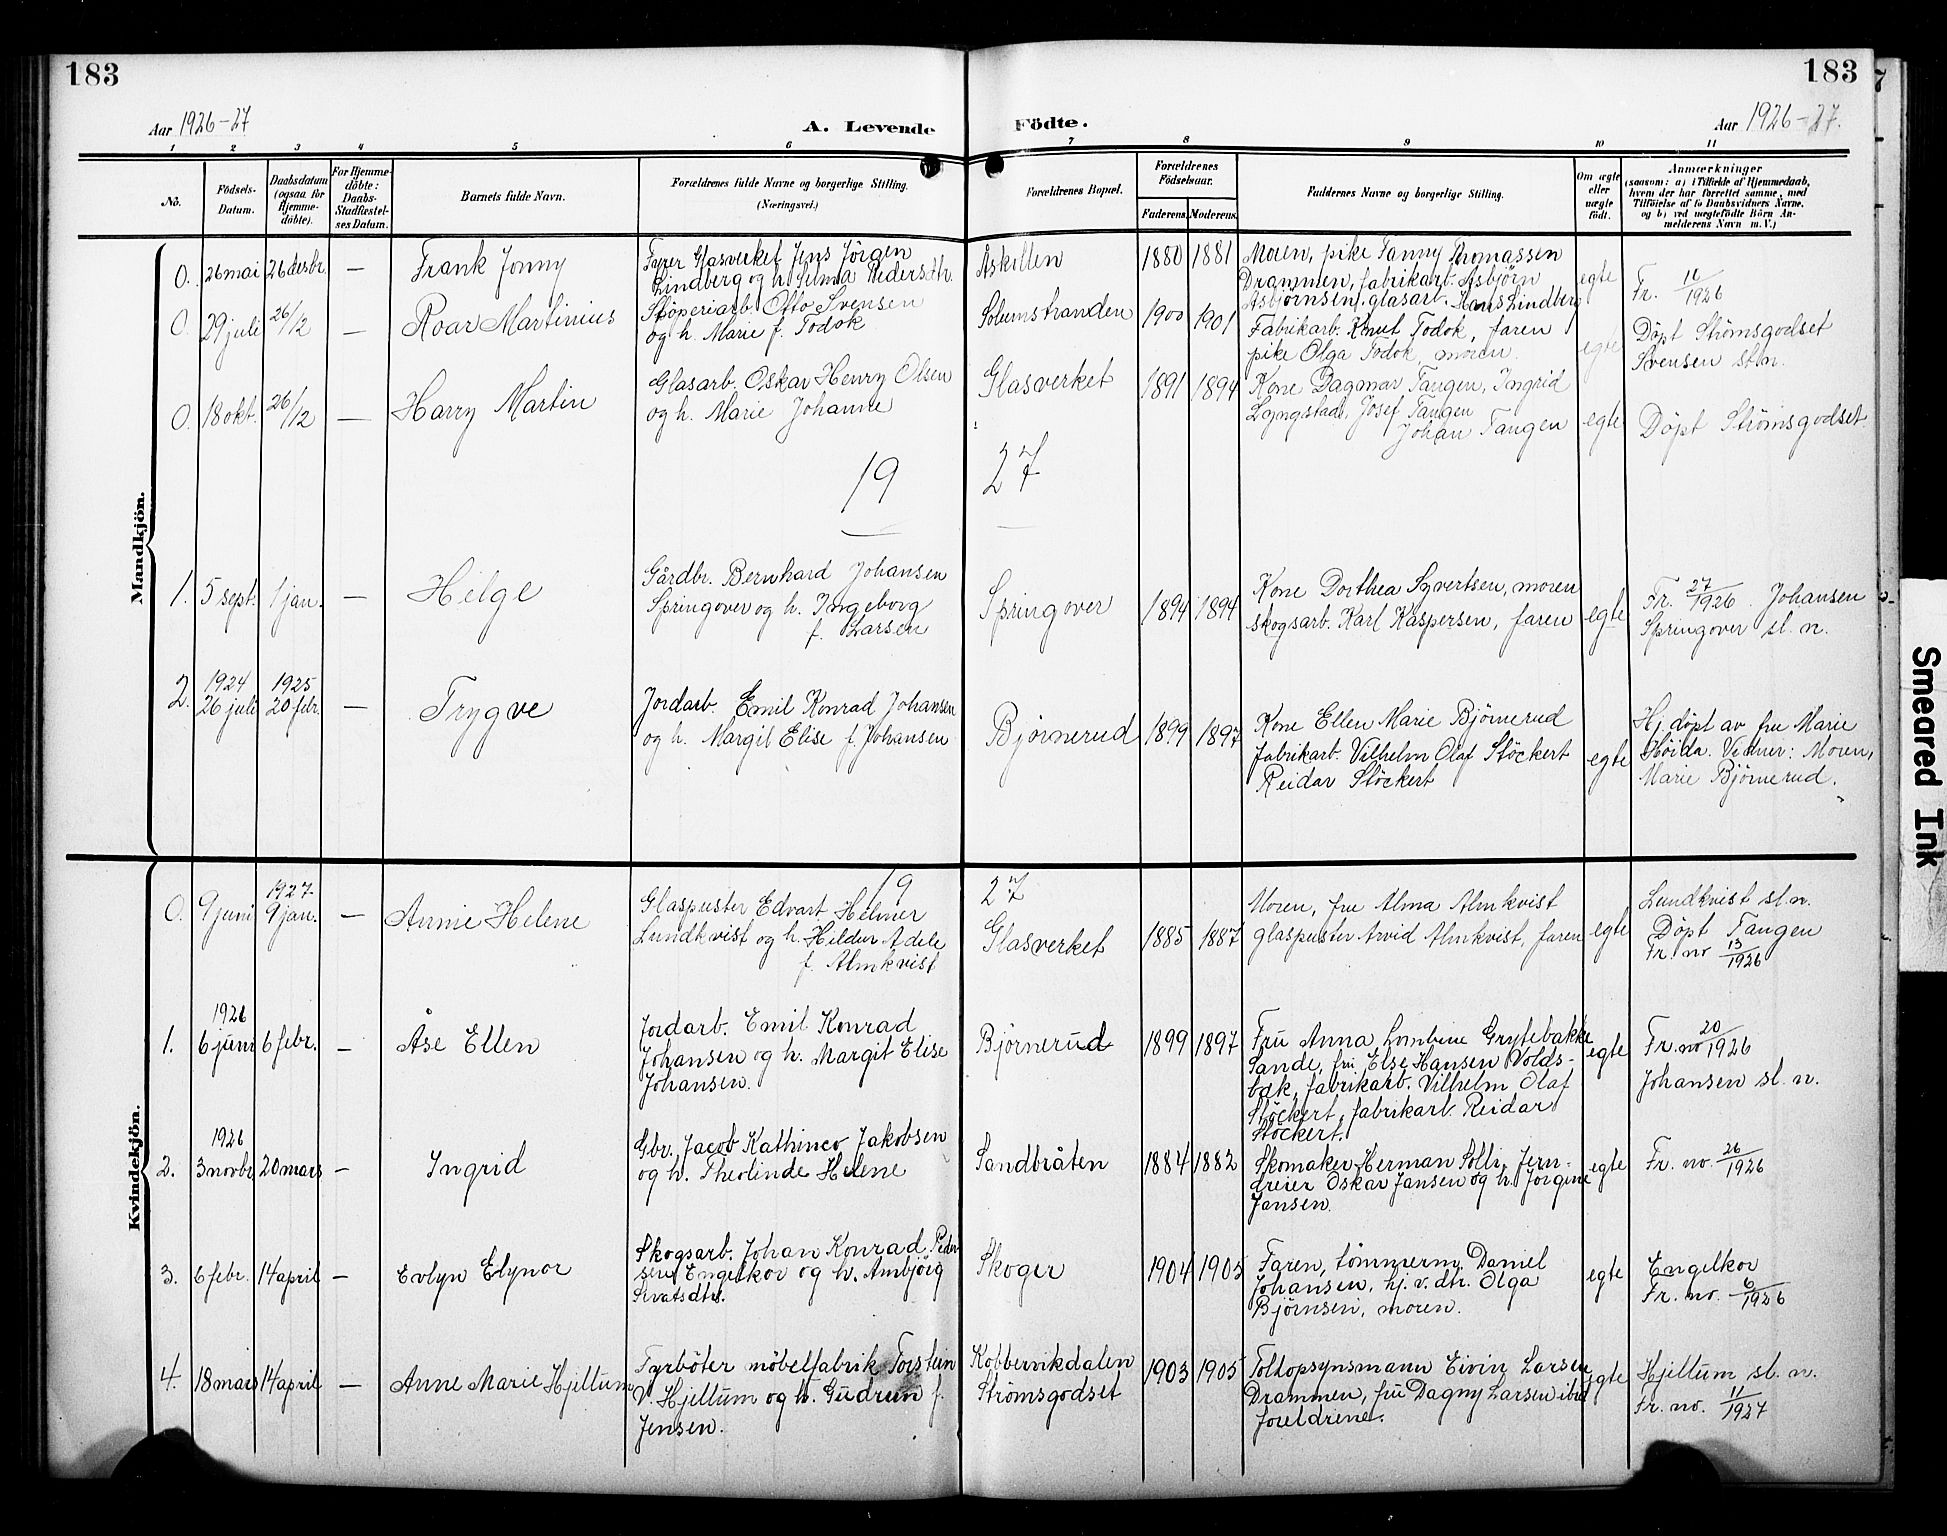 183
183
Aar 1926-27
A. Levende Födte.
Aar 1926-27.
1 2 3 4 5 6 7 8 9 10 11
No.
Födsels-
Datum.
Daabsdatum
(ogsaa for
Hjemme-
döbte).
For Hjemme-
döbte:
Daabs-
Stadfæstel-
ses Datum.
Barnets fulde Navn.
Forældrenes fulde Navne og borgerlige Stilling.
(Næringsvei.)
Forældrenes Bopæl.
Forældrenes
Födselsaar.
Faderens. Moderens.
Faddernes Navne og borgerlige Stilling.
Om ægte
eller
uægte
födt.
Anmærkninger
(saasom: a) i Tilfælde af Hjemmedaab,
hvem der har forrettet samme, med
Tilföielse af to Daabsvidners Navne,
og b) ved uægtefödte Börn An-
melderens Navn m. V.)
Mandkjön.
0. 26 mai 26 desbr. — Frank Jonny
Fyrer Glasverket Jens Jörgen
Lindberg og h. Selma Pedersdtr.
Åskollen 1880 1881
Moren, pike Fanny Thomassen
Drammen, fabrikarb. Asbjörn
Asbjörnsen, glasarb. Hans Lindberg
egte
Fr. 11/1926
0. 29 juli 26/12 — Roar Martinius
Stöperiarb. Otto Svensen
og h. Marie f. Todok
Solumstranden 1900 1901
Fabrikarb. Knut Todok, faren
pike Olga Todok, moren.
egte
Döpt Strömsgodset
Svensen sl.n.
0. 18 okt. 26/12 — Harry Martin
Glasarb. Oskar Henry Olsen
og h. Marie Johanne
Glasverket 1891 1894
Kone Dagmar Tangen, Ingrid
Lyngstad, Josef Tangen
Johan Tangen
egte
Döpt Strömsgodset.
19 27
1. 5 sept. 1 jan. — Helge
Gårdbr. Bernhard Johansen
Springover og h. Ingeborg
f. Larsen
Springover 1894 1894
Kone Dorthea Syvertsen, moren
skogsarb. Karl Kaspersen, faren
egte
Fr. 27/1926. Johansen
Springover sl. n.
2. 1924 26 juli 1925 20 febr. — Trygve
Jordarb. Emil Konrad Johansen
og h. Margit Elise f. Johansen
Björnerud 1899 1897
Kone Ellen Marie Björnerud
fabrikarb. Vilhelm Olaf Stöckert
Reidar Stöckert
egte
Hj. döpt av fru Marie
Höida. Vidner: Moren,
Marie Björnerud.
Kvindekjön.
19 27
0. 9 juni 1927 9 jan. — Annie Helene
Glaspuster Edvart Helmer
Lundkvist og h. Hildur Adele
f. Almkvist
Glasverket 1885 1887
Moren, fru Alma Almkvist
glaspuster Arvid Almkvist, faren
egte
Lundkvist sl.n.
Döpt Tangen
Fr. no 13/1926
1. 1926 6 juni 6 febr. — Åse Ellen
Jordarb. Emil Konrad
Johansen og h. Margit Elise
Johansen.
Björnerud 1899 1897
Fru Anna Lombine Grytebakke
Sande, fru Else Hansen Volds-
bæk, fabrikarb. Vilhelm Olaf
Stöckert, fabrikarb. Reidar
Stöckert.
egte
Fr. no 20/1926
Johansen sl. n.
2. 1926 3 novbr. 20 mars — Ingrid
Gbr. Jacob Kathinco Jakobsen
og h. Theolinde Helene
Sandbråten 1884 1882
Skomaker Herman Solli, Jern-
dreier Oskar Jansen og h. Jörgine
Jansen.
egte
Fr. no. 26/1926
3. 6 febr. 14 april — Evlyn Elynor
Skogsarb. Johan Konrad Peder-
sen Engelkor og h. Ambjörg
Sivatsdtr.
Skoger 1904 1905
Faren, tömmerm. Daniel
Johansen, hj. v. dtr. Olga
Björnsen, moren.
egte
Engelkor
Fr. no. 6/1926
4. 18 mars 14 april — Anne Marie Hjeltum
Fyrböter möbelfabrik Torstein
V. Hjeltum og h. Gudrun f.
Jensen.
Kobbervikdalen
Strömsgodset
1903 1905
Toldopsynsmann Eivin Larsen
Drammen, fru Dagny Larsen ibid
foreldrene.
egte
Hjeltum sl. n.
Fr. no. 11/1927
Smeared Ink